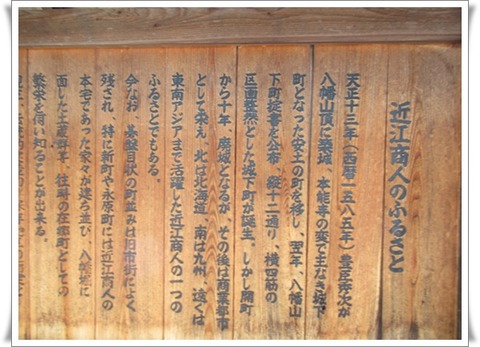 近江商人のふるさと
天正十三年（西暦一五八五年）豊臣秀次が
八幡山頂に築城、本能寺の変で主なき城下
町となった安土の町を移し、翌年、八幡山
下町掟書を公布 縦十二通り、横四筋の
区画整然とした城下町が誕生。しかし開町
から十年、廃城となるが、その後は商業都市
として栄え、北は北海道、南は九州、遠くは
東南アジアまで活躍した近江商人の一つの
ふるさとでもある。
今なお、碁盤目状の町並みは旧市街によく
残され、特に新町や永原町には近江商人の
本宅であった家々が建ち並び、八幡堀に
面した土蔵群等、往時の在郷町としての
繁栄を伺い知ることが出来る。